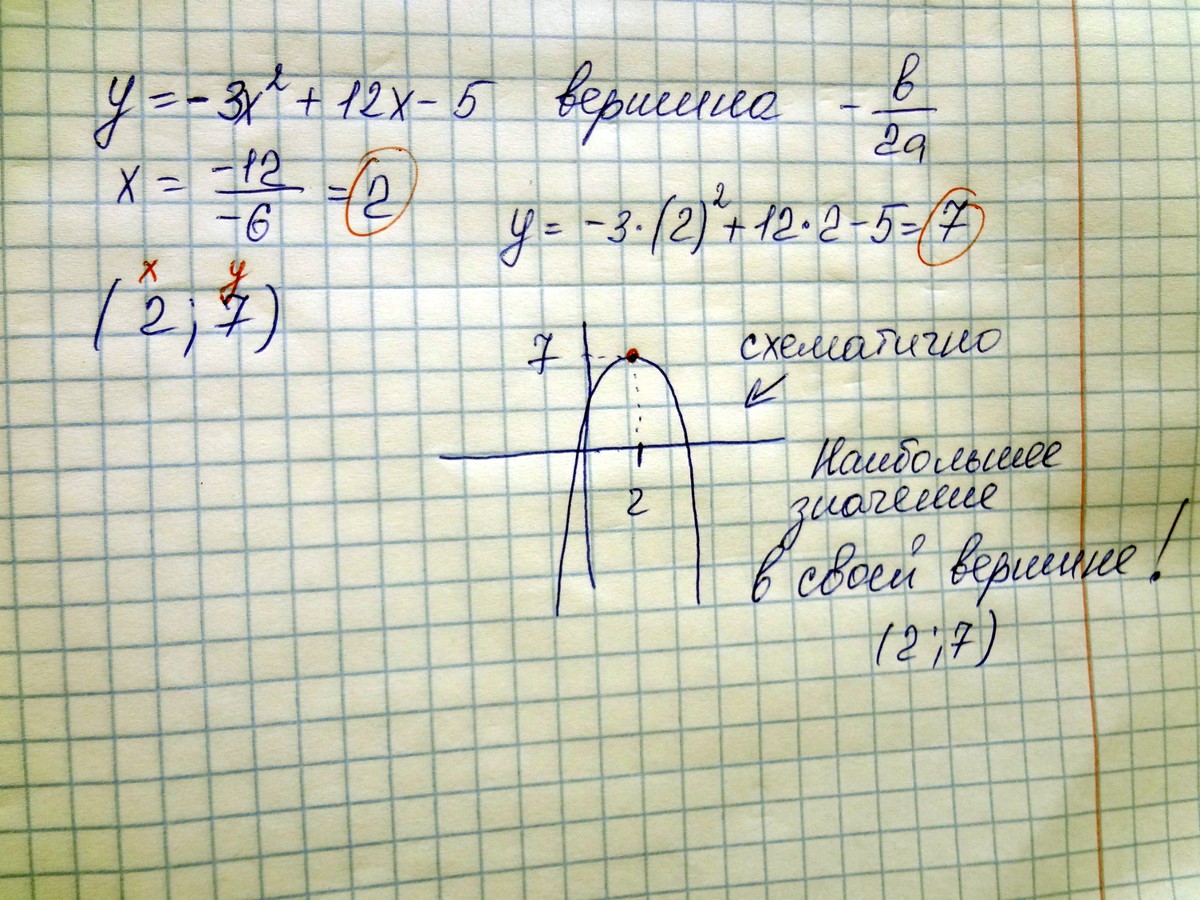 y = -3x² + 12x - 5 вершина - в/2a
x = -12/-6 = 2
y = -3·(2)² + 12·2 - 5 = 7
x y
(2; 7)
7 схематично
2
Наибольшее
значение
в своей вершине!
(2; 7)